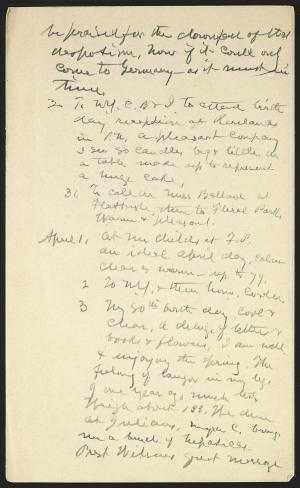 be praised for the downfall of that
despotism, Now if it could only
come to Germany - as it must in
time.
30 To N.Y. C. B & I to attend birth
day reception at
in P.M. A pleasant company
I see 80 candles, big & little on
a table made up to represent
a huge cake,
31, To call on Miss Ballard at
Flatbush, then to Floral Park,
Warm & pleasant.
April 1, At Mr Childs at F.P.
an ideal April day, calm
clear & warm - up to 79.
2 To N.Y. & then home. Cooler.
3 My 80th birth day, cool &
clear, A deluge of letters &
books & flowers, I am well
& enjoying the spring. The
feeling of languor in my legs
of one year ago much less
Weigh about 133, The dinner
at Julians, C. brings
me a bunch of hepaticas.
Prest Wilsons great message